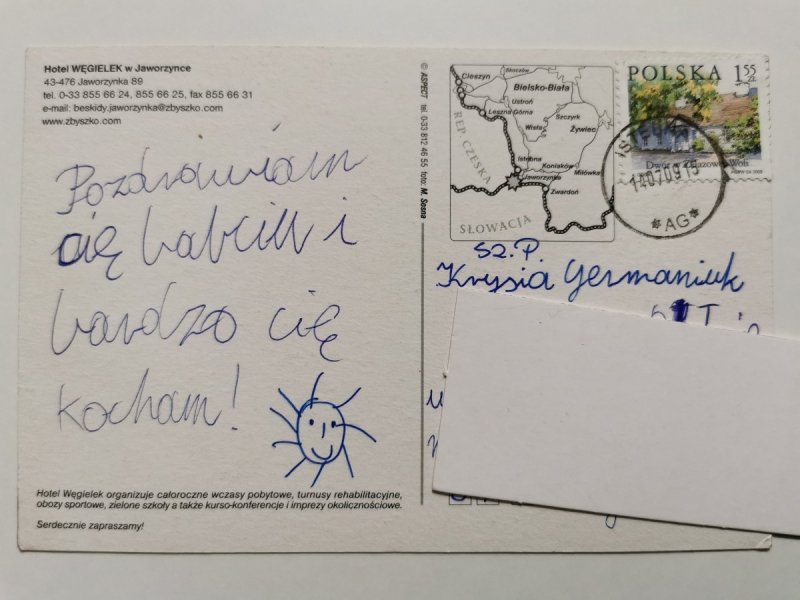 Hotel WĘGIELEK w Jaworzynce
43-476 Jaworzynka 89
tel. 0-33 855 66 24, 855 66 25, fax 855 66 31
e-mail: beskidy.jaworzynka@zbyszko.com
www.zbyszko.com
Pozdrawiam
cię babciu i
bardzo cię
kocham!
Hotel Węgielek organizuje całoroczne wczasy pobytowe, turnusy rehabilitacyjne,
obozy sportowe, zielone szkoły a także kurso-konferencje i imprezy okolicznościowe.
Serdecznie zapraszamy!
© ASPECT tel. 0-33 812 46 55 foto: M. Sosna
Skoczów
Cieszyn
Bielsko-Biała
Ustroń
Leszna Górna
Szczyrk
Wisła
Żywiec
REP. CZESKA
Istebna
Koniaków
Jaworzynka
Milówka
Zwardoń
SŁOWACJA
POLSKA 1,55 zł
Dwór w Żelazowej Woli
140709 15
*AG*
Sz. P.
Krysia Germaniuk